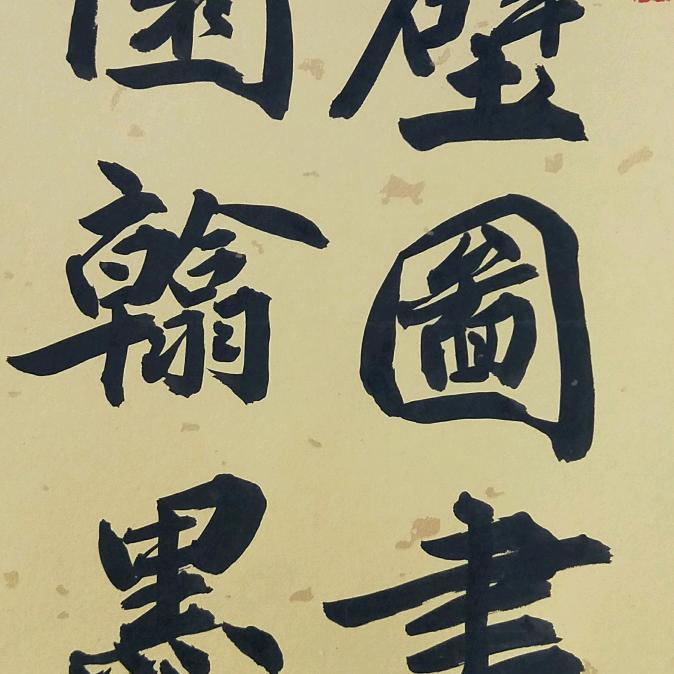 壁圖書
園翰墨